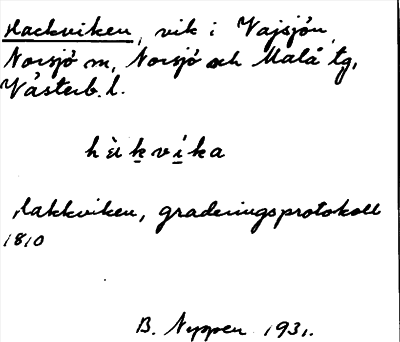 Hackviken, vik i Vajsjön,
Norsjö sn, Norsjö och Malå tg,
Västerb. l.
Lakkviken, graderingsprotokoll
1810
B. Nyppen 1931.